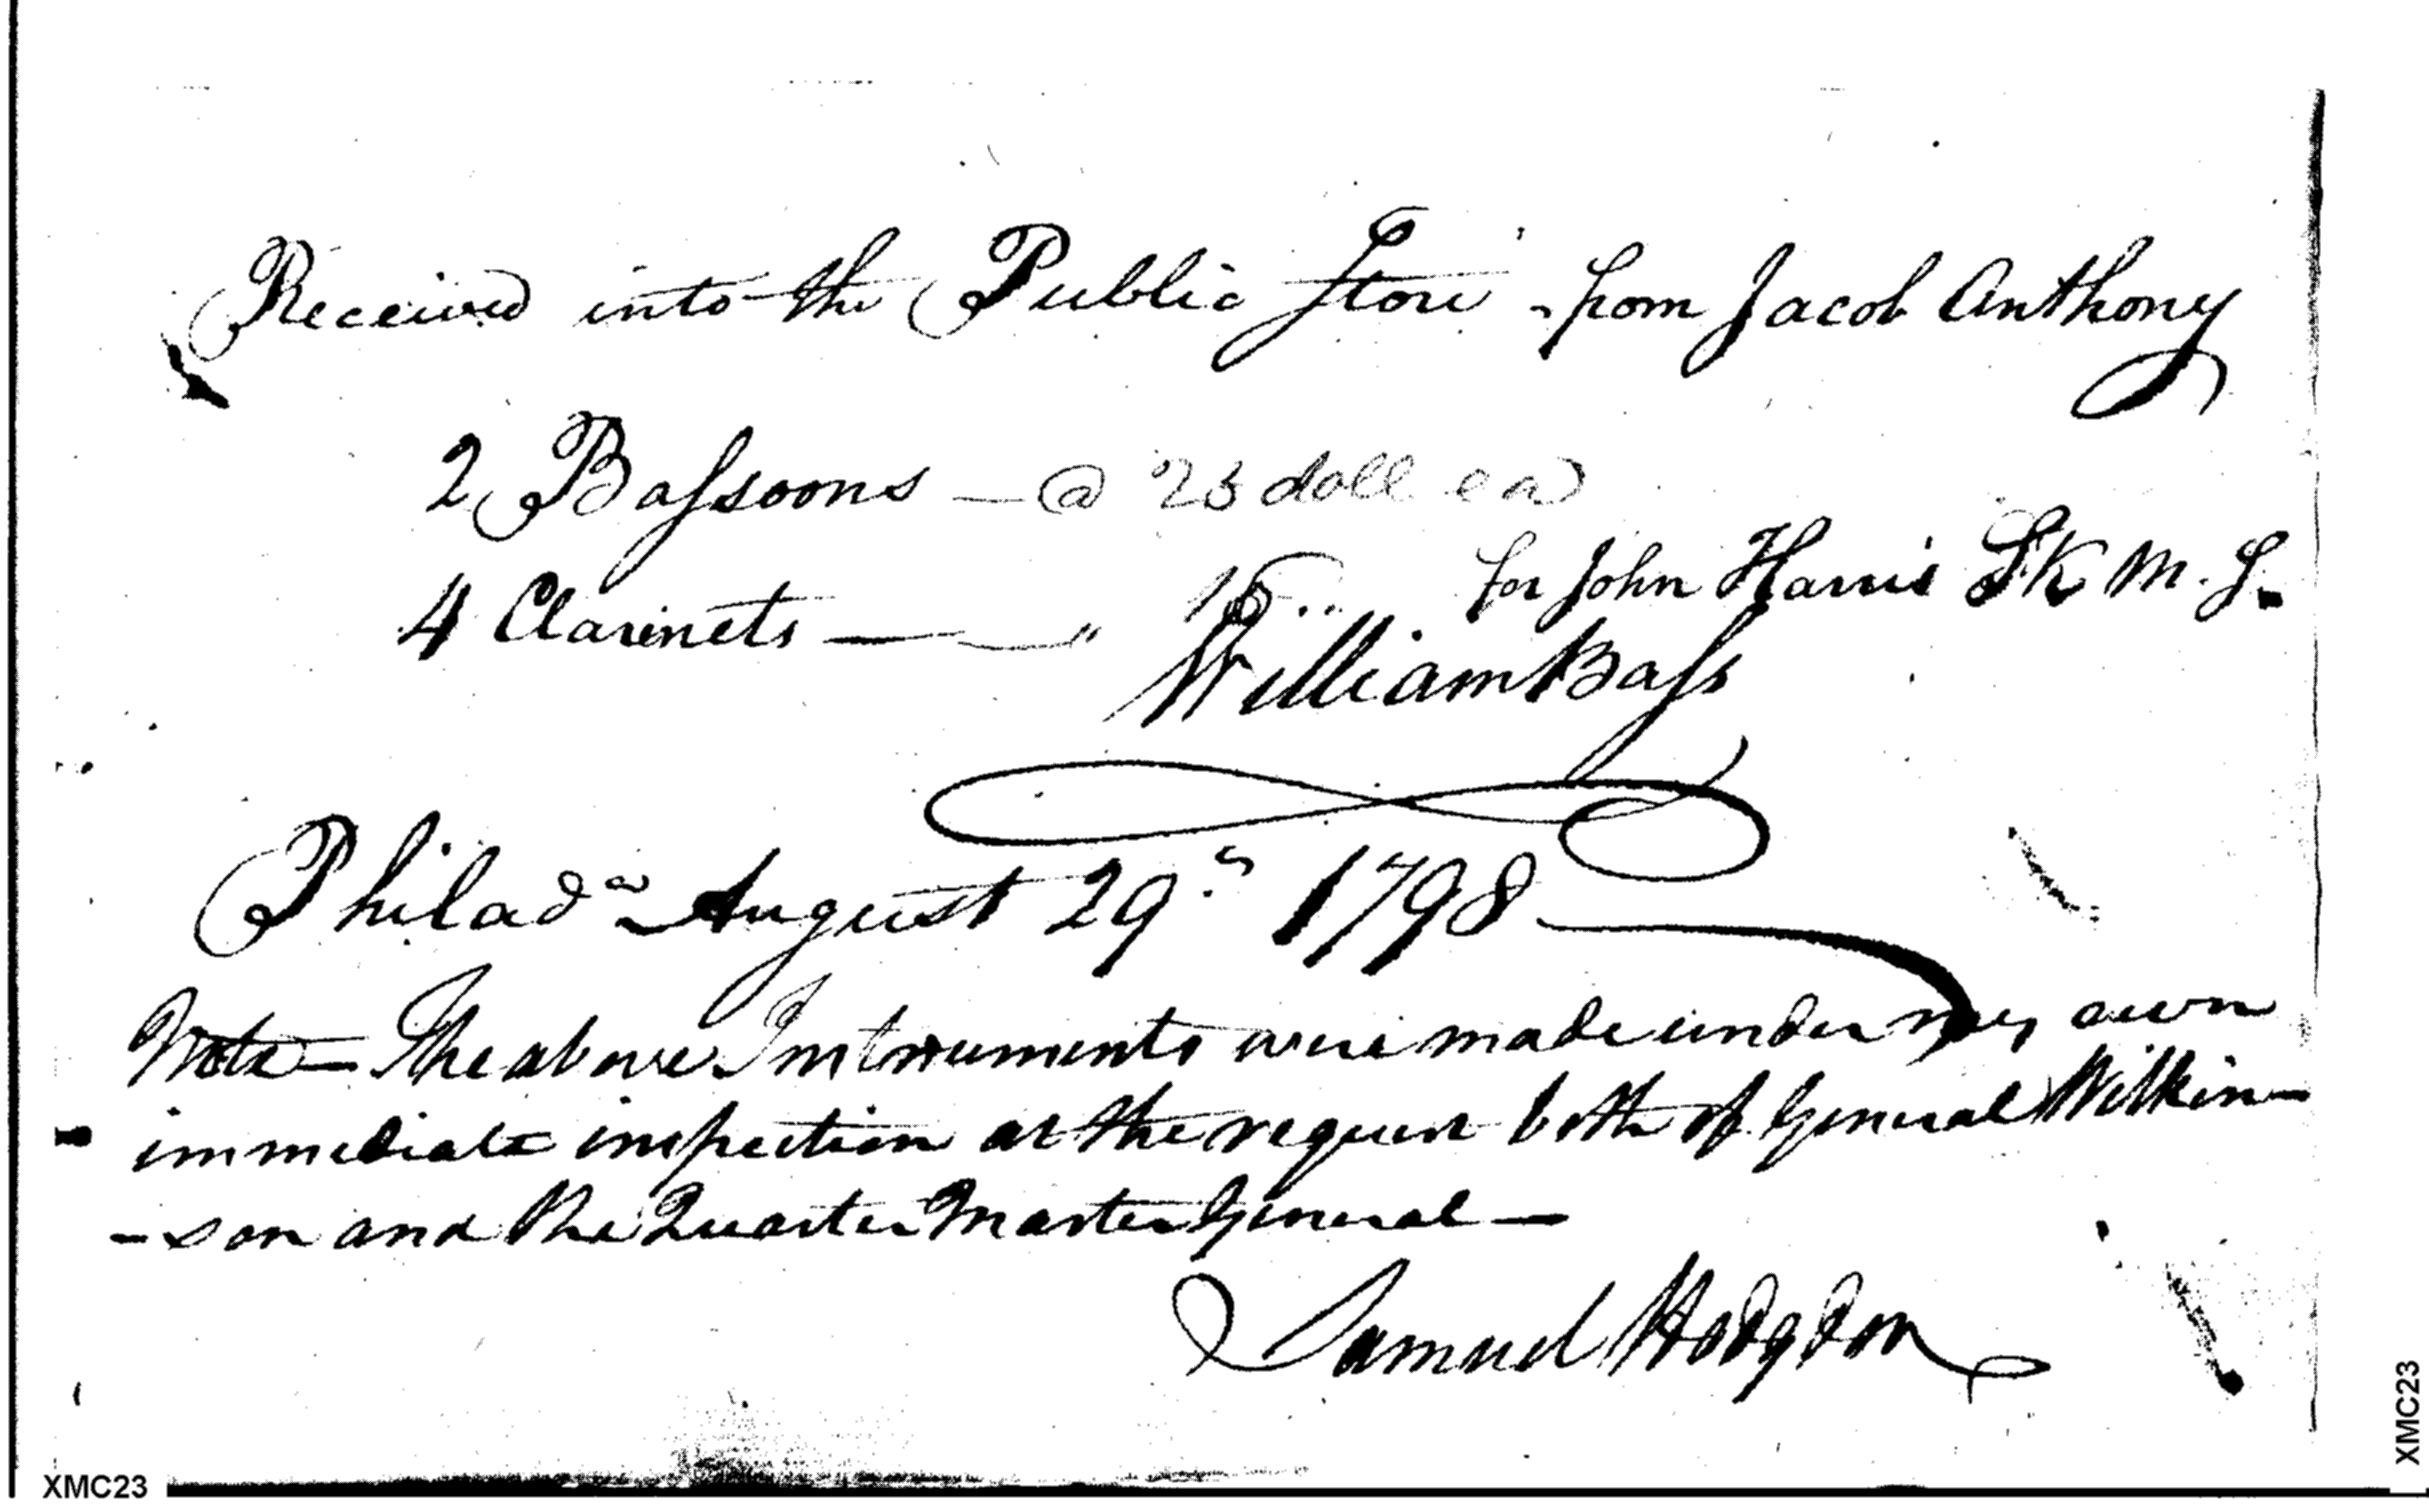 Received into the Public Store from Jacob Anthony
2 Bassoons — @ 25 doll ea
4 Clarinets — " 15 ..
for John Harris SK M. S.
William Bass
Philad.a August 29th 1798
Note — The above Instruments were made under my own
immediate inspection at the request both of General Wilkin-
-son and the Quarter Master General —
Samuel Hodgdon
XMC23
XMC23